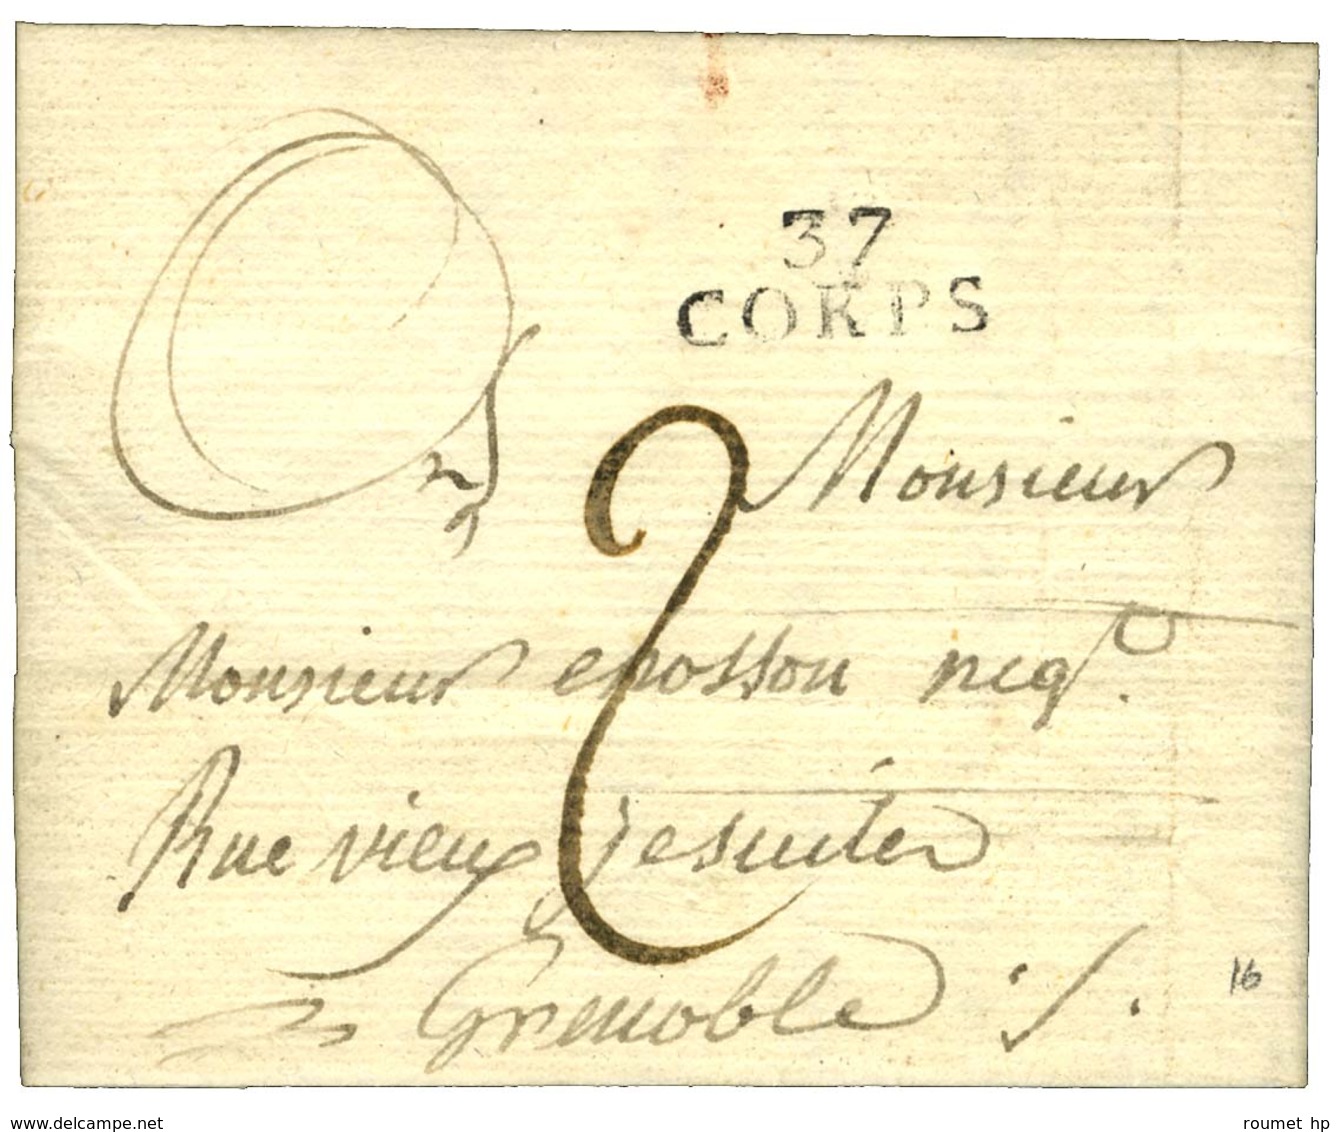 37
CORPS
2
Monsieur
Monsieur chosson negt.
Rue vieux Jesuites
Grenoble
16
www.delcampe.net
roumet hp